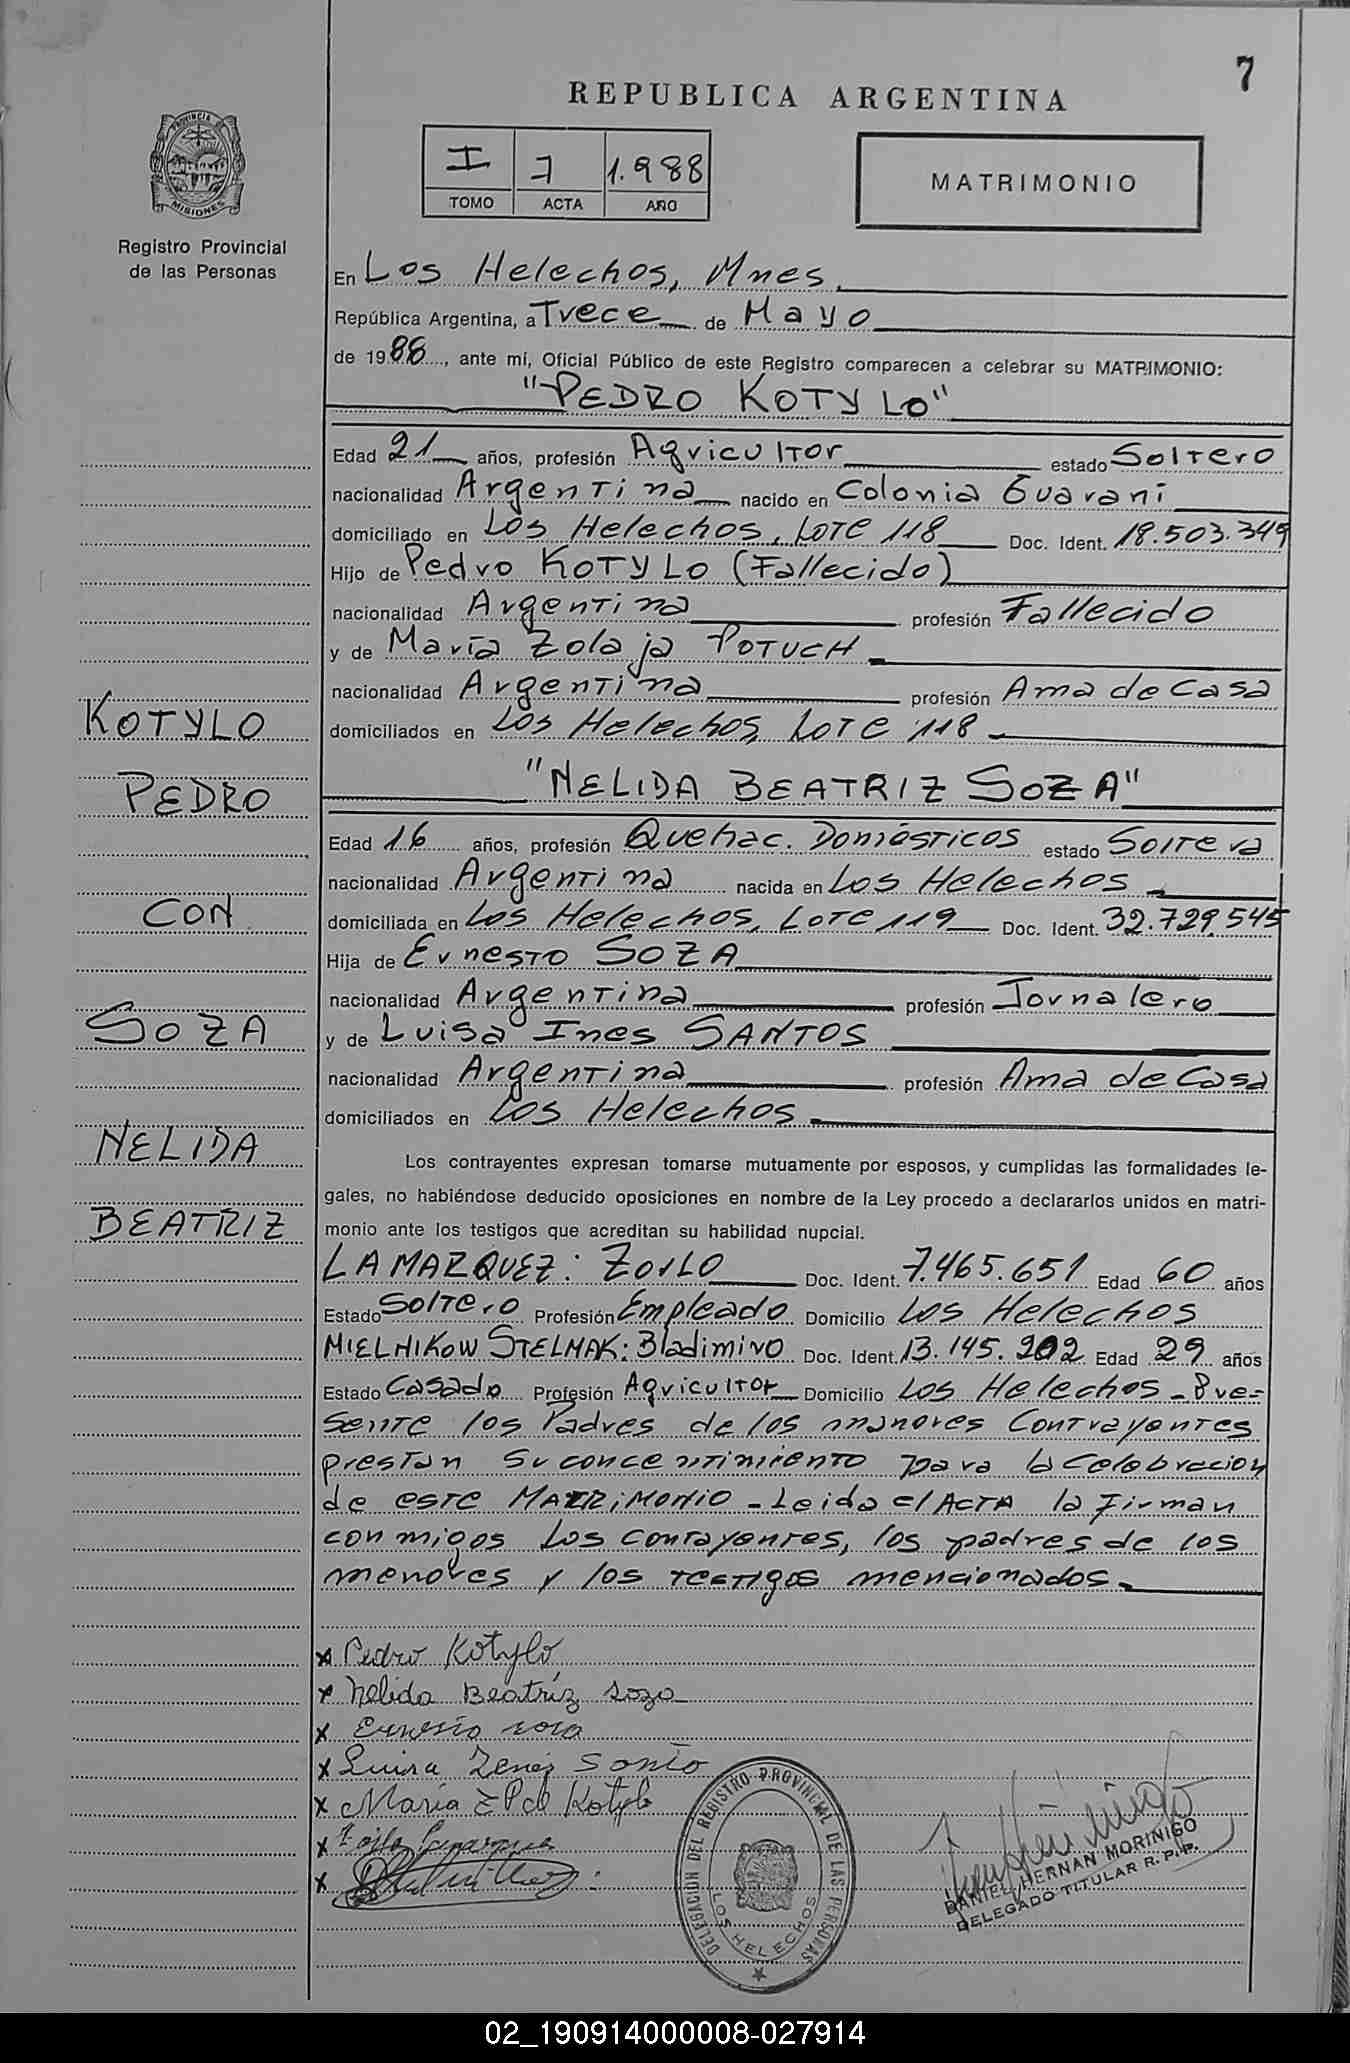 7
REPUBLICA ARGENTINA
PROVINCIA DE
MISIONES
I 7 1.988
TOMO ACTA AÑO
MATRIMONIO
Registro Provincial
de las Personas
En Los Helechos, Mnes.
República Argentina, a Trece de Mayo
de 1988, ante mí, Oficial Público de este Registro comparecen a celebrar su MATRIMONIO:
"PEDRO KOTYLO"
Edad 21 años, profesión Agricultor estado Soltero
nacionalidad Argentina nacido en Colonia Guarani
domiciliado en Los Helechos, Lote 118 Doc. Ident. 18.503.349
Hijo de Pedro KOTYLO (Fallecido)
nacionalidad Argentina profesión Fallecido
y de María Zolaja POTUCH
nacionalidad Argentina profesión Ama de Casa
domiciliados en Los Helechos, Lote 118
"NELIDA BEATRIZ SOZA"
Edad 16 años, profesión Quehac. Domésticos estado Soltera
nacionalidad Argentina nacida en Los Helechos
domiciliada en Los Helechos, Lote 119 Doc. Ident. 32.729.545
Hija de Ernesto SOZA
nacionalidad Argentina profesión Jornalero
y de Luisa Ines SANTOS
nacionalidad Argentina profesión Ama de Casa
domiciliados en Los Helechos
KOTYLO
PEDRO
CON
SOZA
NELIDA
BEATRIZ
Los contrayentes expresan tomarse mutuamente por esposos, y cumplidas las formalidades le-
gales, no habiéndose deducido oposiciones en nombre de la Ley procedo a declararlos unidos en matri-
monio ante los testigos que acreditan su habilidad nupcial.
LAMARQUEZ: Zoilo Doc. Ident. 7.465.651 Edad 60 años
Estado Soltero Profesión Empleado Domicilio Los Helechos
MIELNIKOW STELMAK: Bladimiro Doc. Ident. 13.145.202 Edad 29 años
Estado Casado Profesión Agricultor Domicilio Los Helechos - Pre=
sente los Padres de los menores Contrayentes
prestan su concentimiento para la Celebracion
de este MATRIMONIO - Leida el ACTA la Firman
conmigos Los contayentes, los padres de los
menores y los testigos mencionados.
x Pedro Kotylo
x Nelida Beatríz Soza
x Ernesto soza
x Luisa
x María Z P de Kotylo
x Zoilo
x
DELEGACION DEL REGISTRO PROVINCIAL DE LAS PERSONAS
LOS HELECHOS
DANIEL HERNAN MORINIGO
DELEGADO TITULAR R.P.P.
02_190914000008-027914